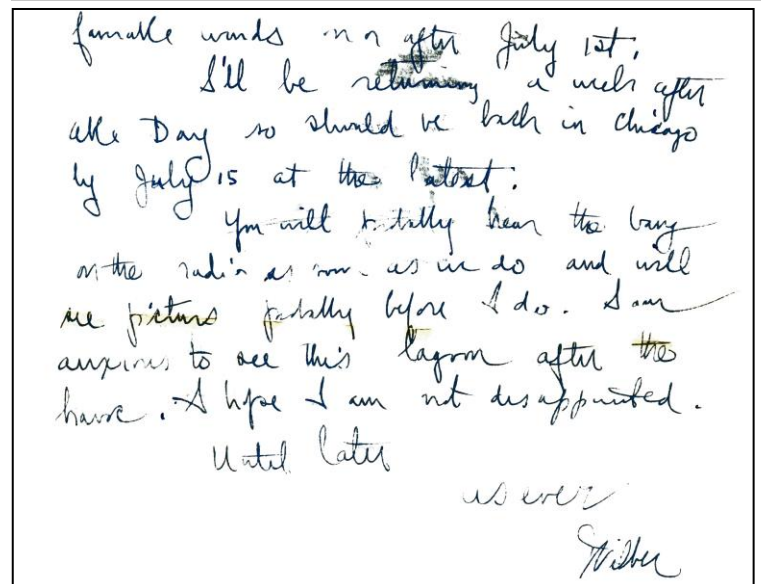 favorable winds on or after July 1st.
I'll be returning a week after
able Day so should be back in Chicago
by July 15 at the latest.
You will probably hear the bang
on the radio as soon as we do and will
see pictures probably before I do. I am
anxious to see this lagoon after the
I hope I am not disappointed.
Until later
as ever
Wilber